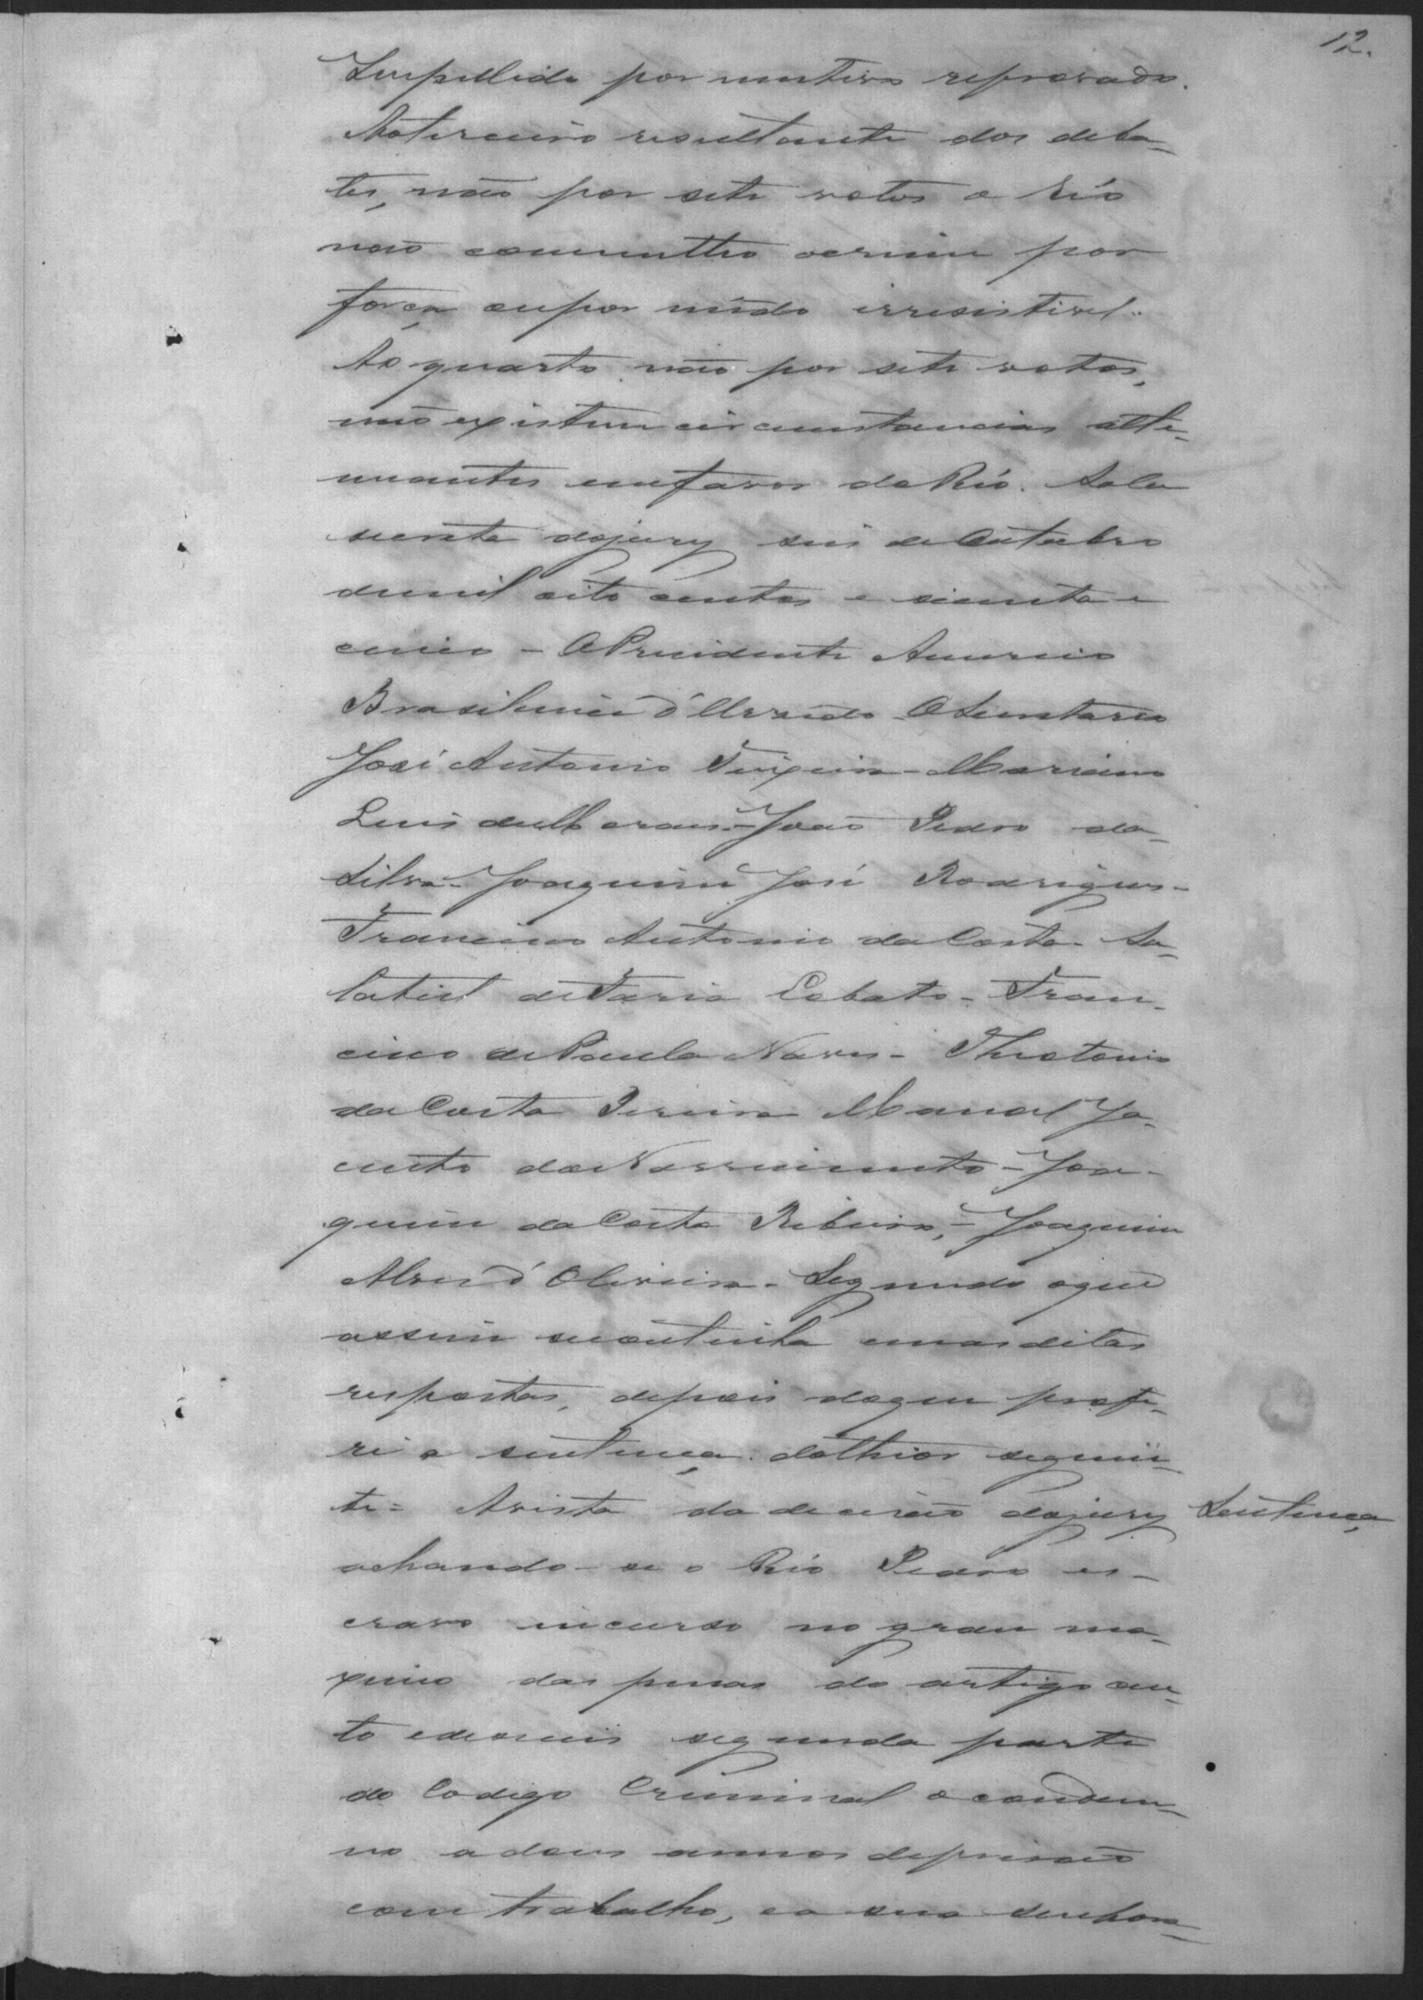 12.
Impellido por motivo reprovado.
Aoterceiro resultante dos deba-
tes, não por sete votos o Réo
não commetteo ocrime por
força oupor mêdo irresistivel.
Ao quarto não por sete votos,
não existem circunstancias atte-
nuantes emfavor do Réo. Sala
secreta dojury seis de Outubro
demil oito centos e sicenta e
cinco - OPresidente Americo
Brasiliense d'Almeida O Secretario
José Antonio Teixeira - Marciano
Luis deMoraes - João Pedro da
Silva - Joaquim José Rodrigues -
Francisco Antonio da Costa - Sa-
latiel de Faria Lobato - Fran-
cisco de Paula Naves - Theotonio
da Costa Pereira Manoel Ja-
cinto do Nascimento - Joa-
quim da Costa Ribeiro, - Joaquim
Alves d'Oliveira - Segundo oque
assim secontinha emas ditas
respostas, depois doque profe-
ri a sentença dothior seguin-
te = Avista da decisão dojury
Sentença
achando-se o Réo Pedro es-
cravo incurso no grau ma-
ximo das penas do artigo cen-
to edeseseis segunda parte
do Codigo Criminal o condem-
no a dous annos deprisão
com trabalho, e a seu senhor